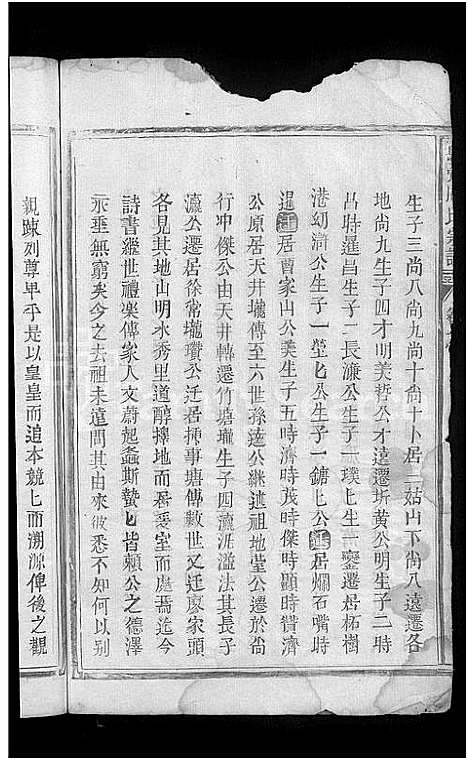 生子三尚八尚九尚十尙十卜居二姑山下尙八遠遷各
地尙九生子四才明美哲公才遠遷圻黄公明生子二時
昌時暹昌生子二長濂公生子一璞七生一鑾遷居柘樹
港幼滸公生子一瑩七公生子一鏣七公遷居爛石嘴時
暹遷居曹家山公美生子五時濟時茂時傑時顯時贊濟
公原居天井壠傳至六世孫遠公繼述祖地瑾公遷於尙
行冲傑公由天井轉遷竹塘壠生子四瀛涯溢法其長子
瀛公遷居徐常壠瓚公迁居揷事塘傳數世又迁廖家頭
各見其地山明水秀里道醇擇地而居爰室而處焉迄今
詩書繼世禮樂傳家人文蔚起螽斯蟄七皆賴公之德澤
永垂無窮矣今之去祖未遠問其由來彼悉不知何以别
親踈列尊卑乎是以皇皇而追本競七而溯源俾後之觀